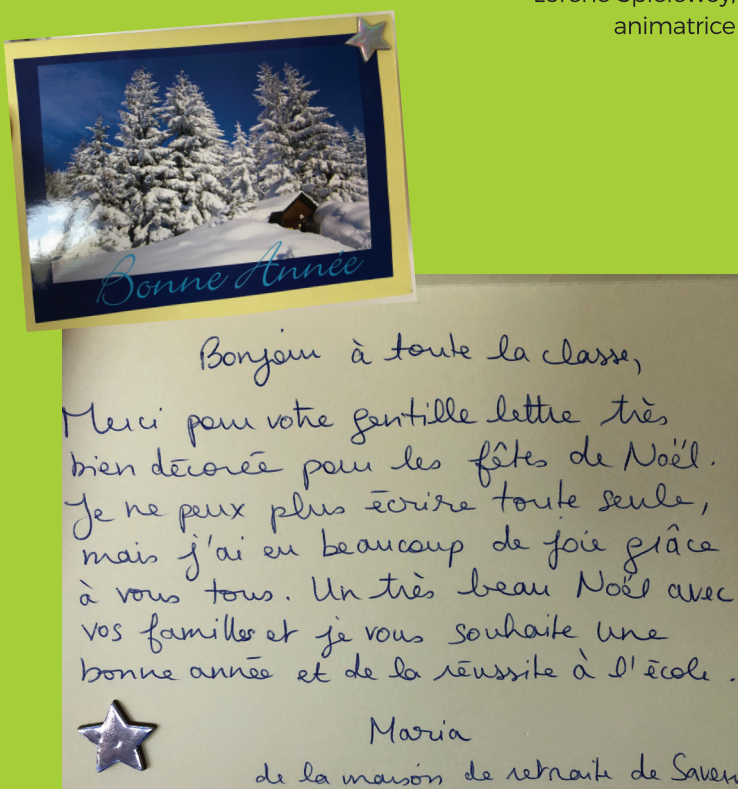 animatrice
Bonne Année
Bonjour à toute la classe,
Merci pour votre gentille lettre très
bien décorée pour les fêtes de Noël.
Je ne peux plus écrire toute seule,
mais j'ai eu beaucoup de joie grâce
à vous tous. Un très beau Noël avec
vos familles et je vous souhaite une
bonne année et de la réussite à l'école.
Maria
de la maison de retraite de